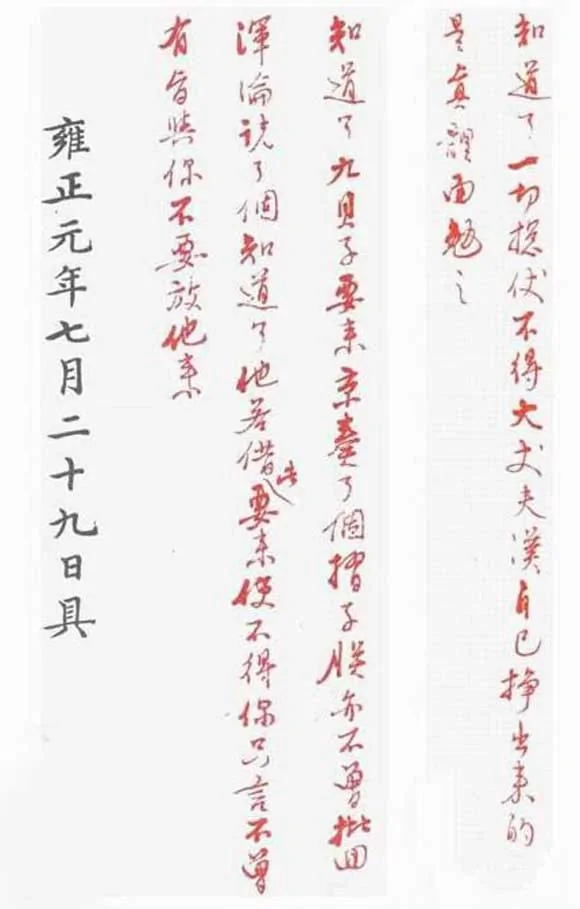 知道了一切揔仗不得大丈夫漢自己掙出来的
是真體面勉之
知道了九貝子要来京奏了個摺子朕亦不曾批回
渾淪說了個知道了他若借此要来使不得你只言不曾
有旨與你不要放他来
雍正元年七月二十九日具